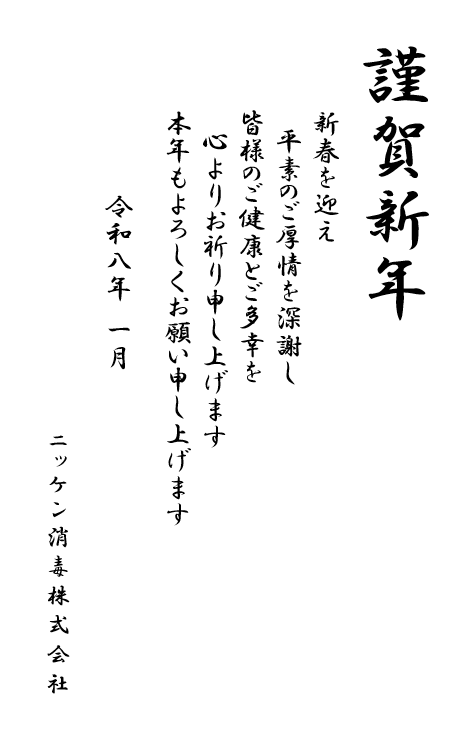 謹賀新年
新春を迎え
平素のご厚情を深謝し
皆様のご健康とご多幸を
心よりお祈り申し上げます
本年もよろしくお願い申し上げます
令和八年 一月
ニッケン消毒株式会社